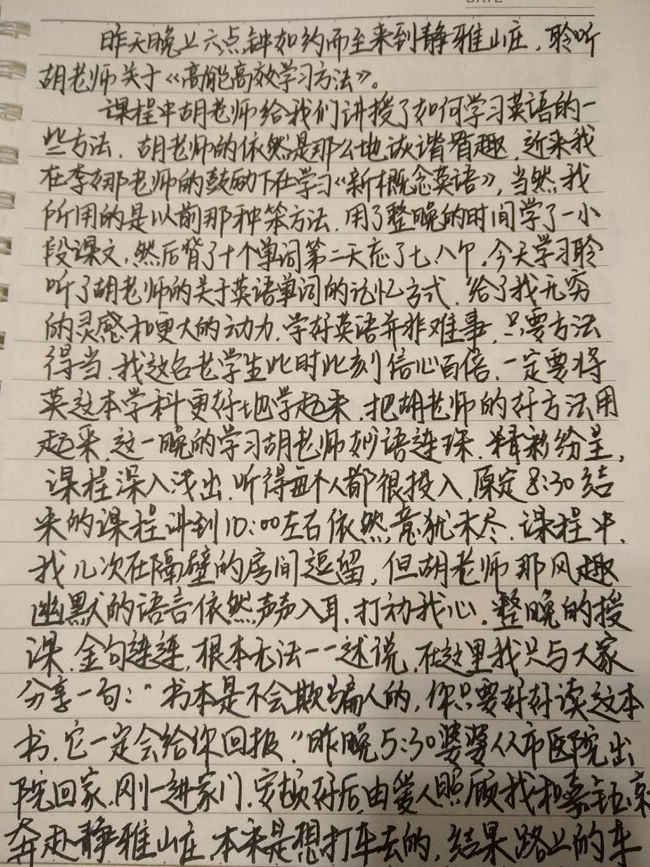 昨天晚上六点钟如约而至来到静雅山庄，聆听
胡老师关于《高能高效学习方法》。
课程中胡老师给我们讲授了如何学习英语的一
些方法．胡老师的依然是那么地诙谐有趣．近来我
在李娜老师的鼓励下在学习《新概念英语》，当然．我
所用的是以前那种笨方法．用了整晚的时间学了一小
段课文，然后背了十个单词第二天忘了七八个．今天学习聆
听了胡老师的关于英语单词的记忆方式．给了我无穷
的灵感和更大的动力．学好英语并非难事，只要方法
得当．我这名老学生此时此刻信心百倍．一定要将
英这本学科更好地学起来．把胡老师的好方法用
起来．这一晚的学习胡老师妙语连珠．精彩纷呈，
课程深入浅出．听得每个人都很投入．原定8:30结
束的课程讲到10:00左右依然意犹未尽．课程中．
我几次在隔壁的房间逗留，但胡老师那风趣
幽默的语言依然声声入耳．打动我心．整晚的授
课．金句连连，根本无法一一述说．在这里我只与大家
分享一句：“书本是不会欺骗人的，你只要好好读这本
书．它一定会给你回报”昨晚5:30婆婆从市医院出
院回家．刚一进家门．安顿好后．由爱人照顾我和
奔赴静雅山庄．本来是想打车去的，结果路上的车